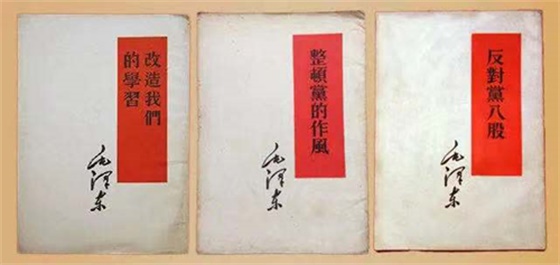 改造我們
的學習
毛澤东
整頓黨的作風
毛澤东
反對黨八股
毛澤东